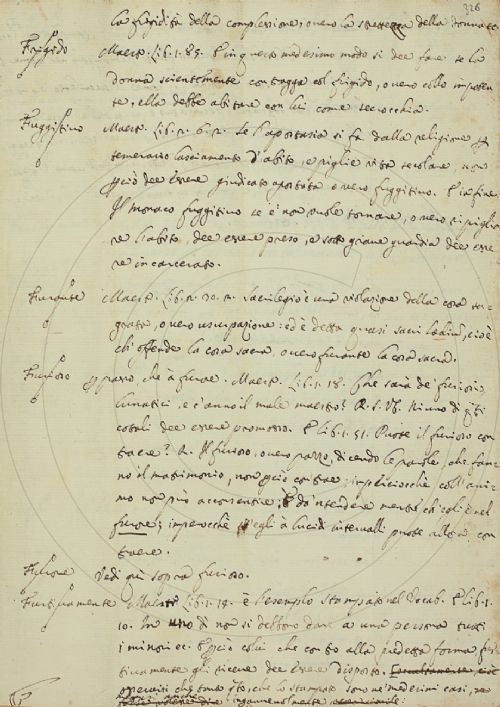 326
la frigidità della complessione, o vero la strettezza della donna ec.
Frigido Maest. Lib. 1. 85. E in questo medesimo modo si dee fare se la
donna scientemente contragga col frigido, o vero collo impoten
te, ella debbe abitare con lui come sirocchia.
Fuggitivo Maest. Lib. 2. 6. 2. Se l'apostasia si fa dalla religione p
temerario lasciamento d'abito, e piglie vita secolare, non
pciò dee essere giudicato apostata o vero fuggitivo. E in fine
Il monaco fuggitivo se è non vuole tornare, o vero ripiglia
re l'abito, dee essere preso, e sotto grave guardia dee esse
re incarcerato.
Furante Maest. Lib. 2. 20. 2. Sacrilegio è una violazione della cosa sa
grata, o vero usurpazione: ed è detta quasi sacri ledium, cioè
chi offende la cosa sacra, o vero furante la cosa sacra.
Furioso p pazzo, che à furore. Maest. Lib. 1. 18. Che sarà de' furiosi
lunatici, e c'anno il male maestro? Niuno di questi
cotali dee essere promosso. E lib. 1. 51. Puote il furioso con
traere? R. Il furioso, o vero pazzo, dicendo le parole, che fan
no il matrimonio, non pciò contrae; impliciocchè coll'ani
mo non può acconsentire; E do' ntendere mentr' ch'egli è nel
furore; imperocchè s'egli à lucidi intervalli puote allora con
traere.
Vedi qui sopra furioso.
Furtivamente Maest. Lib. 1. 14. è l'esemplo stampato nel Vocab. E lib. 1.
10. In uno dì non si debbono dare a una persona tutti
i minori ec. E pciò colui che contro alla predetta forma fur
tivamente gli riceve dee essere disposto.
che lo stampato sono ne' medesimi casi, pe